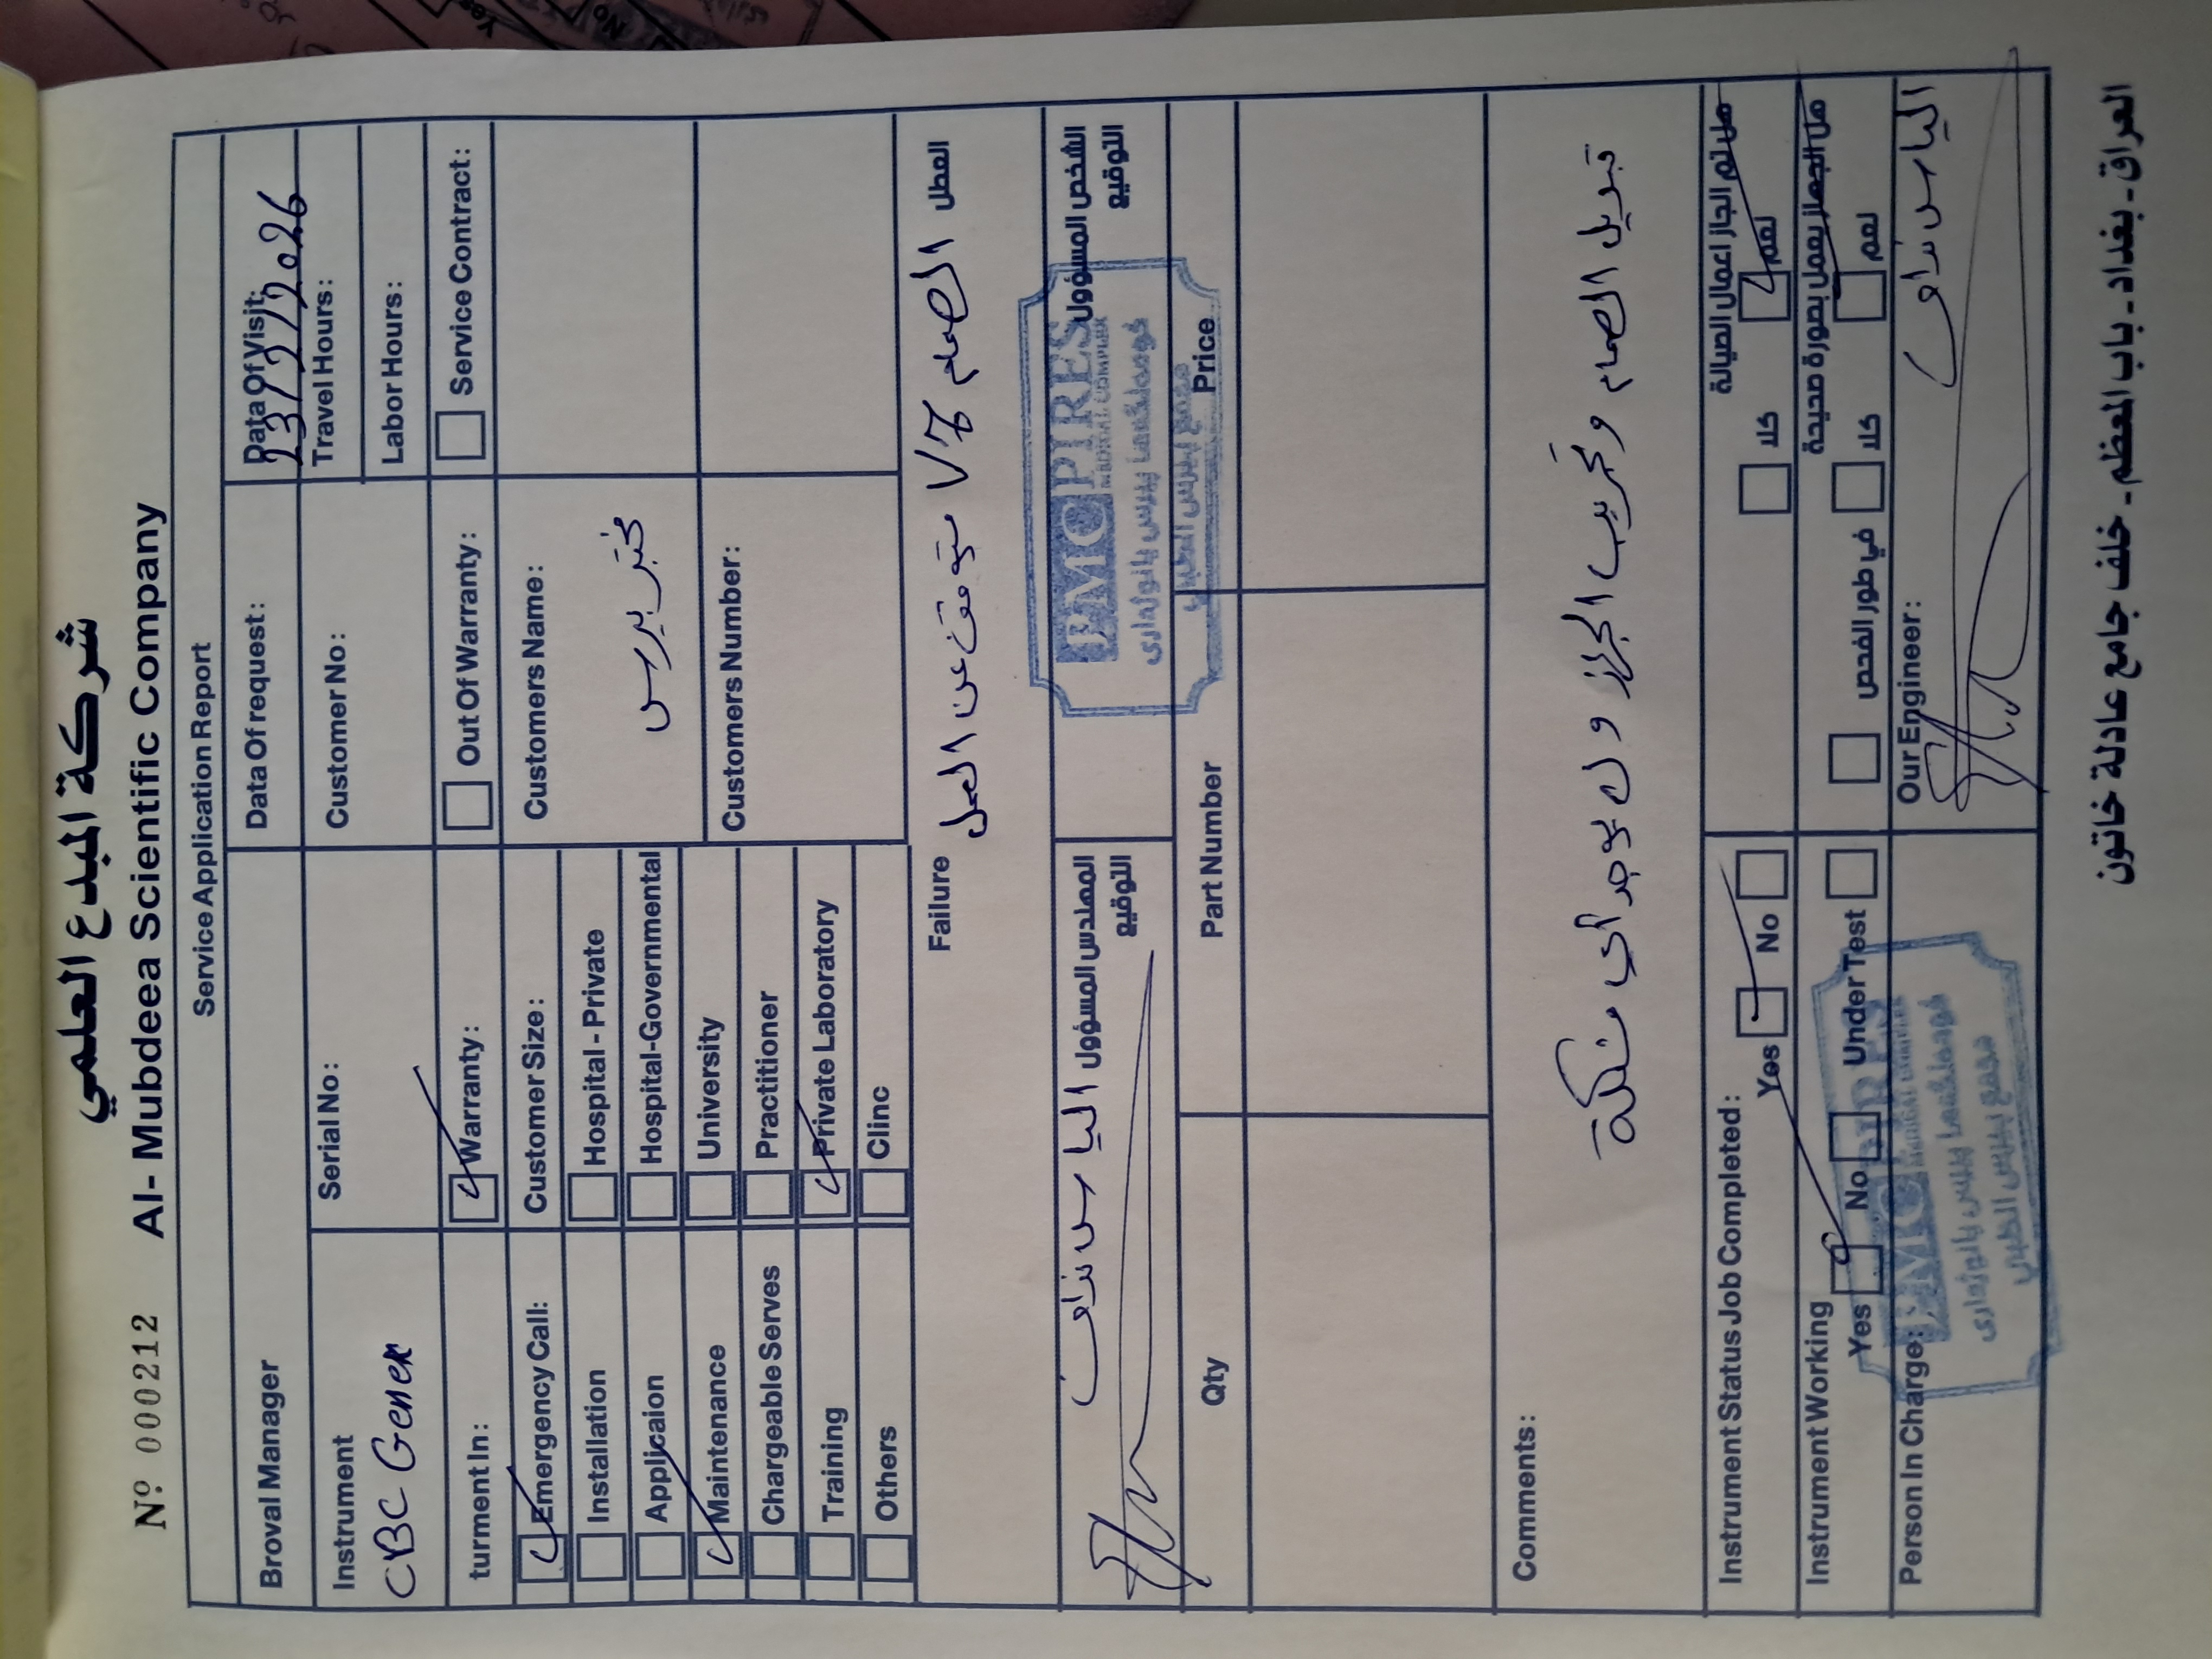 شركة المبدع العلمي
Nº 000212 Al- Mubdeea Scientific Company
Service Application Report
Broval Manager
Data Of request:
Data Of Visit:
23/2/2026
Instrument
CBC Genex
Serial No:
Customer No:
Travel Hours:
Labor Hours:
turment In:
Warranty:
Out Of Warranty:
Service Contract:
Emergency Call:
Installation
Applicaion
Maintenance
Chargeable Serves
Training
Others
Customer Size:
Hospital - Private
Hospital-Governmental
University
Practitioner
Private Laboratory
Clinc
Customers Name:
مختبر بيرس
Customers Number:
Failure
العطل
الصمام V7 متوقف عن العمل
المهندس المسؤول
التوقيع
الشخص المسؤول
التوقيع
PMC PIRES
MEDICAL COMPLEX
مجمع بيرس الطبي
Qty
Part Number
Price
Comments:
تبديل الصمام وتجريب الجهاز و لا يوجد أي مشكلة
Instrument Status Job Completed:
Yes No
هل تم انجاز اعمال الصيانة
نعم كلا
Instrument Working
Yes No Under Test
هل الجهاز يعمل بصورة صحيحة
نعم كلا في طور الفحص
Person In Charge:
Our Engineer:
PMC PIRES
مجمع بيرس الطبي
العراق - بغداد - باب المعظم - خلف جامع عادلة خاتون